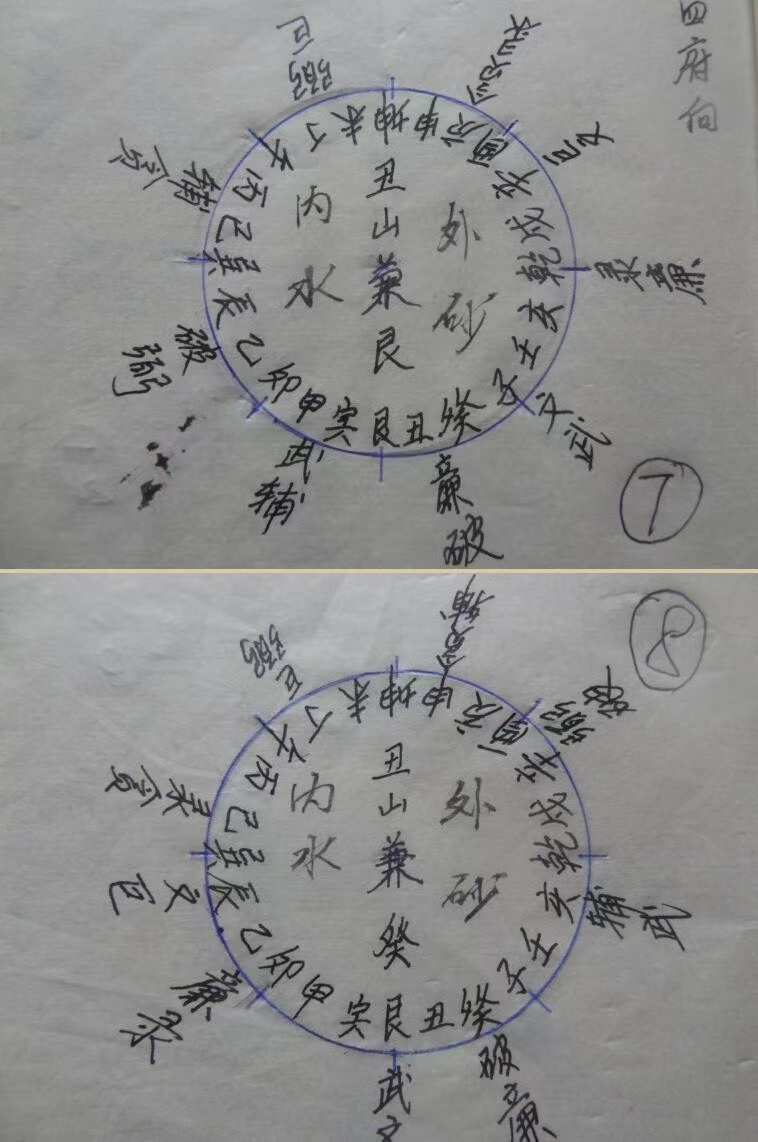 四府向
巨
弼
辛
辛
巨文
未坤申庚酉辛戌乾亥壬子癸丑艮寅甲卯乙辰巽巳丙午丁
丑山兼艮
内水
外砂
貪輔
禄廉
破弼
文武
武輔
廉破
7
8
弼巨
弼破
未坤申庚酉辛戌乾亥壬子癸丑艮寅甲卯乙辰巽巳丙午丁
丑山兼癸
内水
外砂
貪禄
巨文
輔武
廉
武文
破廉